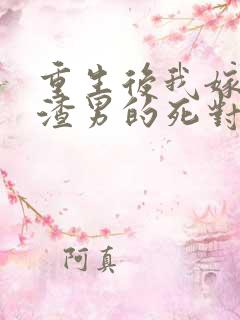 重生後我嫁
渣男的死對
阿真